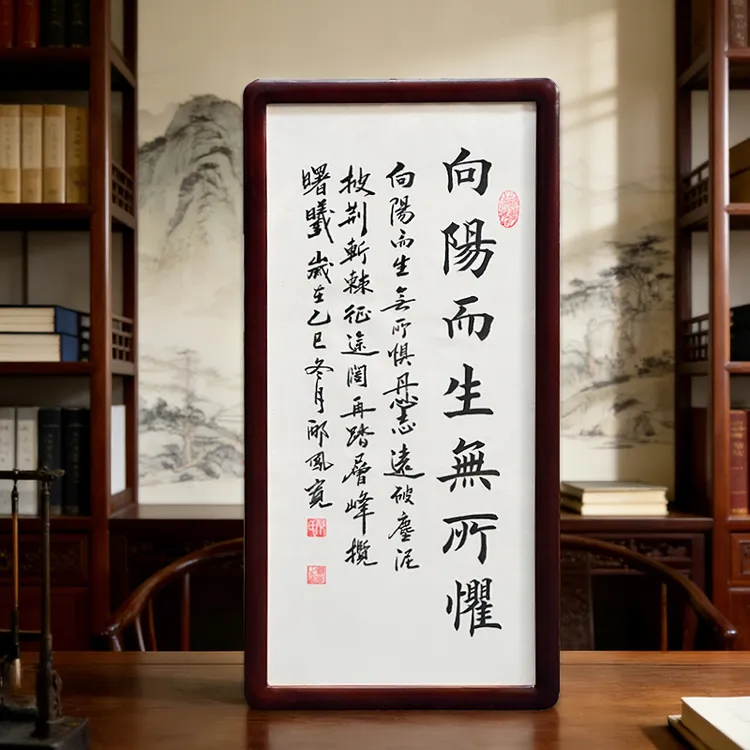 向陽而生無所懼
向陽而生無所懼丹心志遠破塵泥
披荆斬棘征途闊再踏層峰攬
曙曦歲在乙巳冬月邴鳳寬